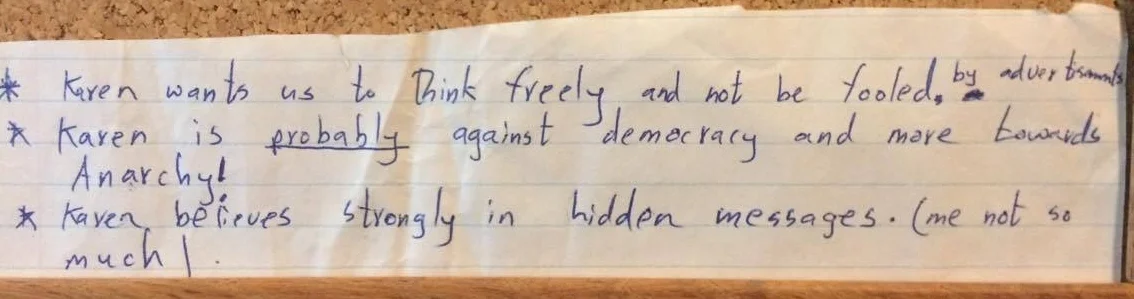 * Karen wants us to Think freely and not be fooled, by advertisments
* Karen is probably against democracy and more towards
Anarchy!
* Karen believes strongly in hidden messages. (me not so
much).